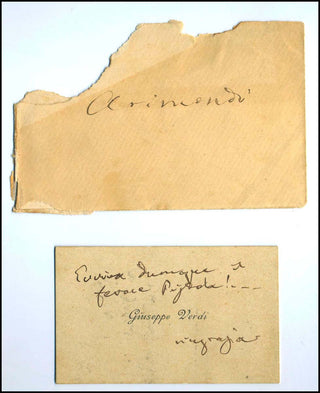 Arimondi
Evviva dunque il
feroce Pistola!...
Giuseppe Verdi
ringrazia